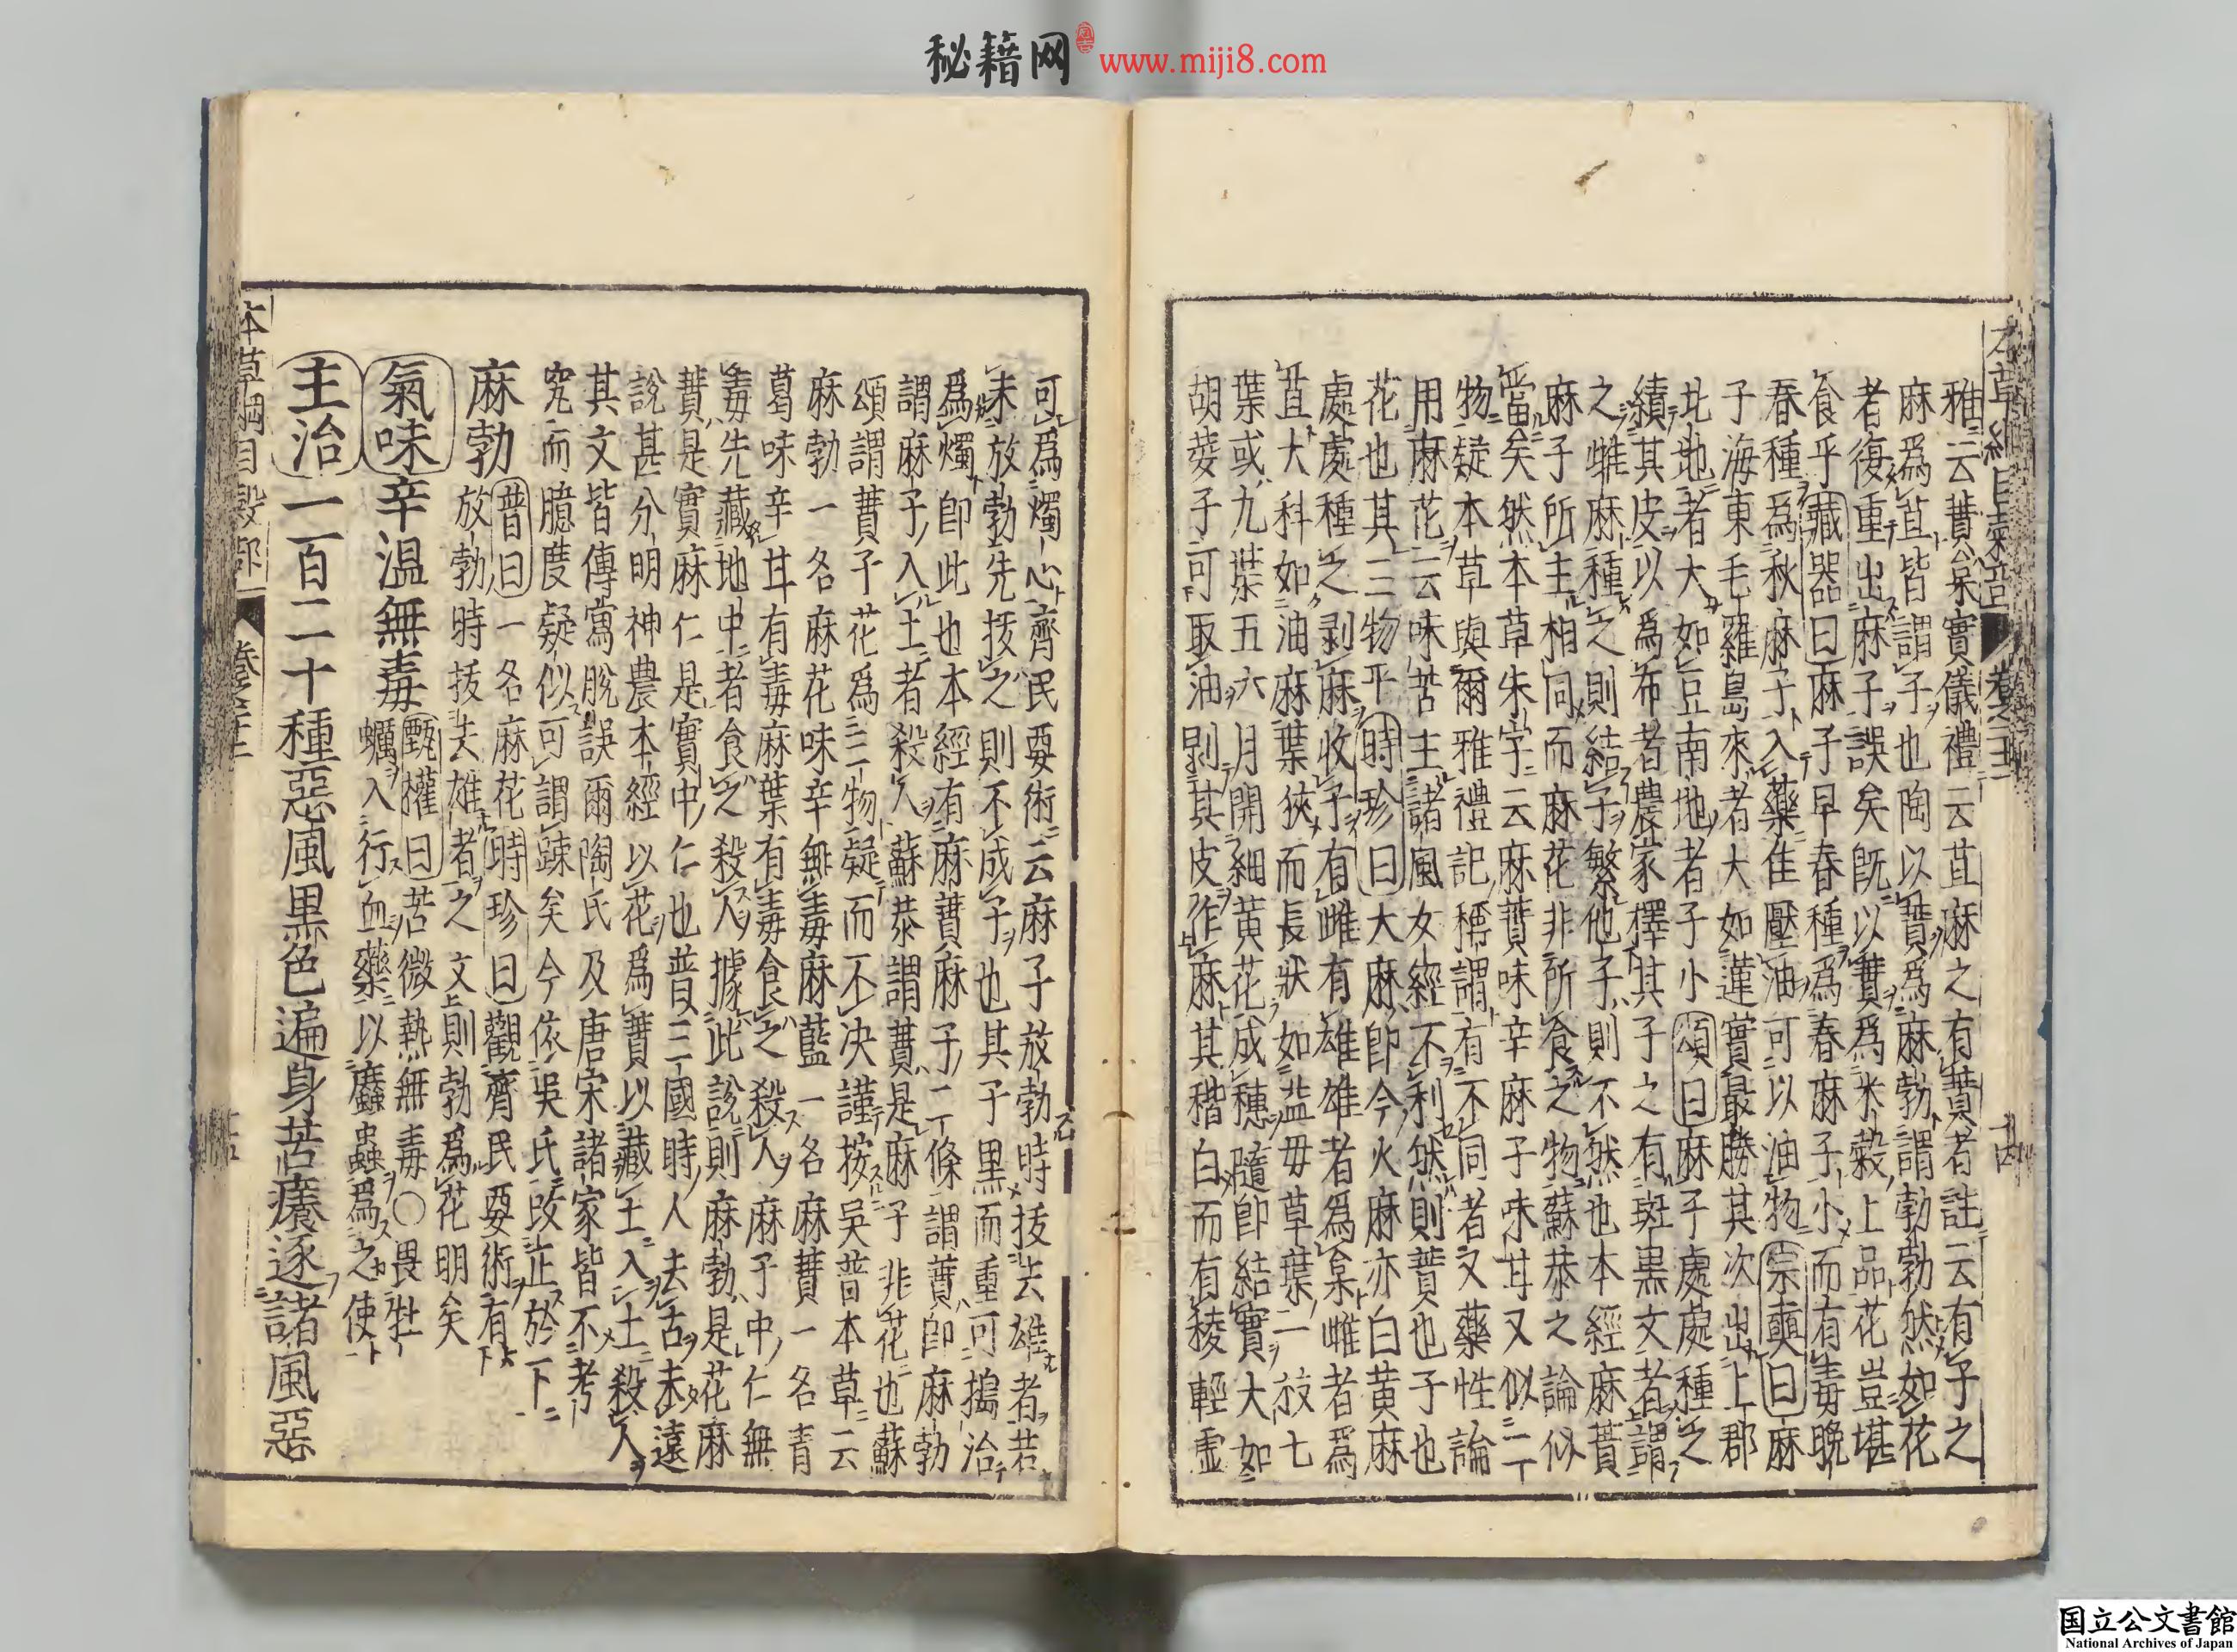 秘籍网 www.miji8.com
雅云蕡枲實儀禮云苴麻之有蕡者註云有子之
麻爲苴皆謂子也陶以蕡爲麻勃謂勃勃然如花
者復重出麻子誤矣既以蕡爲米穀上品花豈堪
食乎藏器曰麻子早春種爲春麻子小而有毒晚
春種爲秋麻子入藥佳壓油可以油物宗奭曰麻
子海東毛羅島來者大如蓮實最勝其次出上郡
北地者大如豆南地者子小頌曰麻子處處種之
績其皮以爲布者農家擇其子之有斑黒文者謂
之雌麻種之則結子繁他子則不然也本經麻蕡
麻子所主相同而麻花非所食之物蘇恭之論似
當矣然本草朱字云麻蕡味辛麻子味甘又似二
物疑本草與爾雅禮記稱謂有不同者又藥性論
用麻花云味苦主諸風女經不利然則蕡也子也
花也其三物乎時珍曰大麻即今火麻亦曰黄麻
處處種之剥麻收子有雌有雄雄者爲枲雌者爲
苴大科如油麻葉狹而長狀如益母草葉一枝七
葉或九葉五六月開細黄花成穗隨即結實大如
胡荽子可取油剥其皮作麻其稭白而有稜輕虚
可爲燭心齊民要術云麻子放勃時拔去雄者若
未放勃先拔之則不成子也其子黒而重可搗治
爲燭即此也本經有麻蕡麻子二條謂蕡即麻勃
謂麻子入土者殺人蘇恭謂蕡是麻子非花也蘇
頌謂蕡子花爲三物疑而不決謹按吳普本草云
麻勃一名麻花味辛無毒麻藍一名麻蕡一名青
葛味辛甘有毒麻葉有毒食之殺人麻子中仁無
毒先藏地中者食之殺人據此說則麻勃是花麻
蕡是實麻仁是實中仁也普三國時人去古未遠
說甚分明神農本經以花爲蕡以藏土入土殺人
其文皆傳寫脫誤爾陶氏及唐宋諸家皆不考
究而臆度疑似可謂踈矣今依吳氏改正於下
麻勃 普曰一名麻花時珍曰觀齊民要術有
放勃時拔去雄者之文則勃爲花明矣
氣味 辛溫無毒 甄權曰苦微熱無毒〇畏牡
蠣入行血藥以䗪蟲爲之使
主治 一百二十種惡風黒色遍身苦癢逐諸風惡
国立公文書館
National Archives of Japan